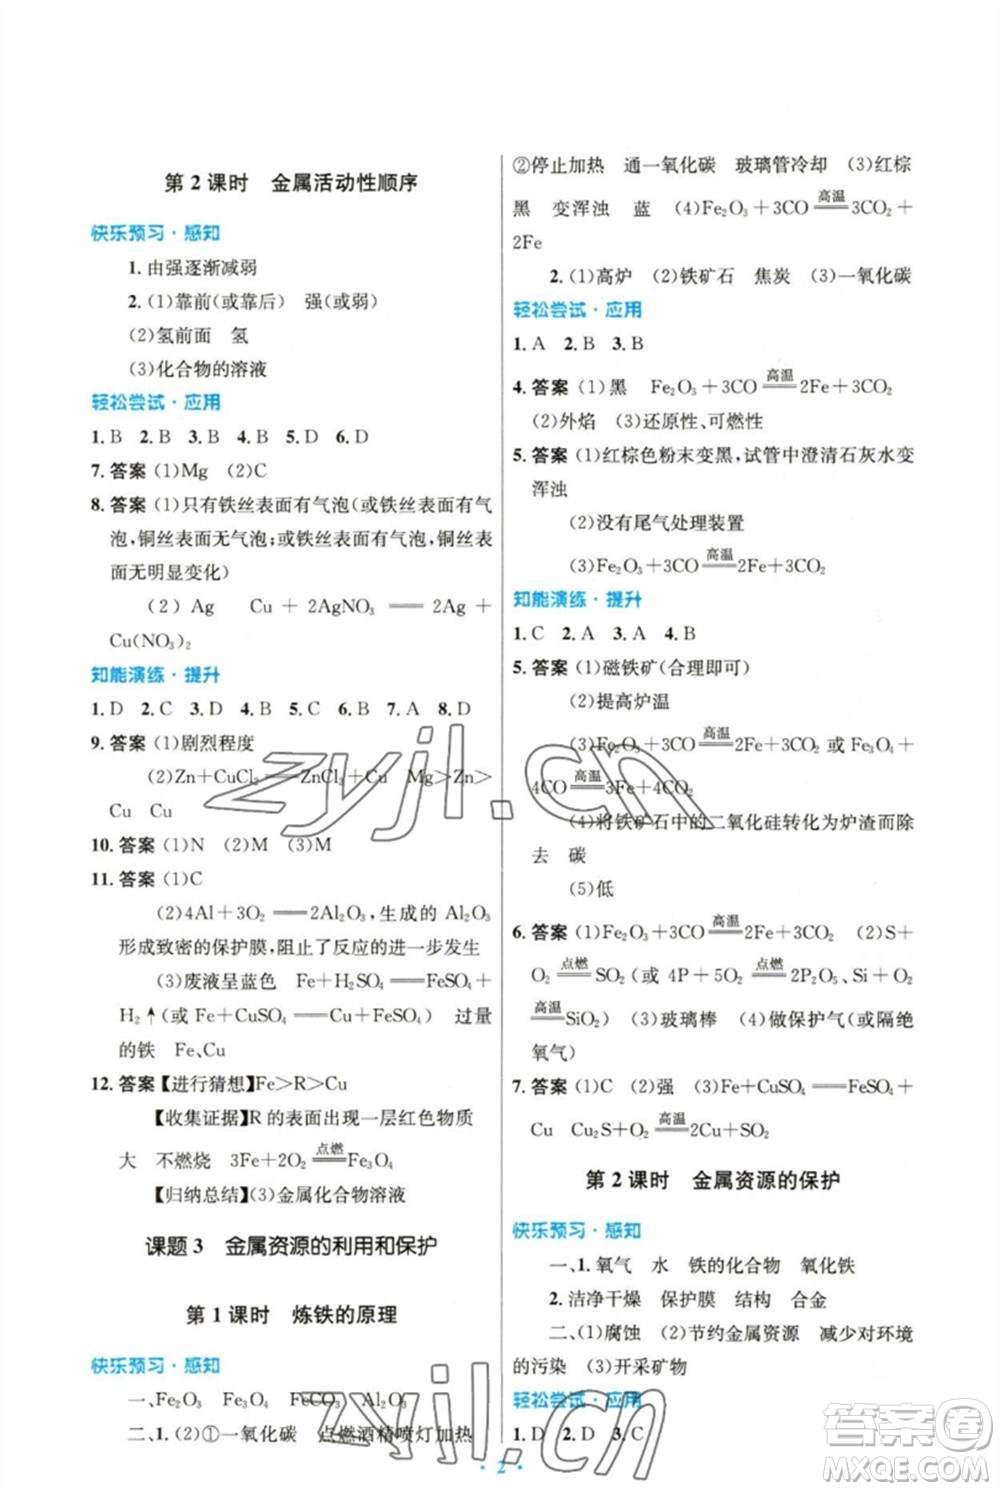 第2课时 金属活动性顺序
快乐预习·感知
1.由强逐渐减弱
2.(1)靠前(或靠后) 强(或弱)
(2)氢前面 氢
(3)化合物的溶液
轻松尝试·应用
1.B 2.B 3.B 4.B 5.D 6.D
7.答案 (1)Mg (2)C
8.答案 (1)只有铁丝表面有气泡(或铁丝表面有气
泡,铜丝表面无气泡;或铁丝表面有气泡,铜丝表
面无明显变化)
(2) Ag Cu + 2AgNO₃ ══ 2Ag +
Cu(NO₃)₂
知能演练·提升
1.D 2.C 3.D 4.D 5.B 6.B 7.A 8.D
9.答案 (1)剧烈程度
(2)Zn+CuCl₂══ZnCl₂+Cu Mg>Zn>
Cu Cu
10.答案 (1)N (2)M (3)M
11.答案 (1)C
(2)4Al+3O₂══2Al₂O₃,生成的 Al₂O₃
形成致密的保护膜,阻止了反应的进一步发生
(3)废液呈蓝色 Fe+H₂SO₄══FeSO₄+
H₂↑(或 Fe+CuSO₄══Cu+FeSO₄) 过量
的铁 Fe、Cu
12.答案【进行猜想】Fe>R>Cu
【收集证据】R的表面出现一层红色物质
大 不燃烧 3Fe+2O₂ 点燃══ Fe₃O₄
【归纳总结】(3)金属化合物溶液
课题3 金属资源的利用和保护
第1课时 炼铁的原理
快乐预习·感知
一、Fe₂O₃ Fe₃O₄ FeCO₃ Al₂O₃
二、1.(2)①一氧化碳 点燃酒精喷灯加热
②停止加热 通一氧化碳 玻璃管冷却 (3)红棕
黑 变浑浊 蓝 (4)Fe₂O₃+3CO 高温══ 3CO₂+
2Fe
2.(1)高炉 (2)铁矿石 焦炭 (3)一氧化碳
轻松尝试·应用
1.A 2.B 3.B
4.答案 (1)黑 Fe₂O₃+3CO 高温══ 2Fe+3CO₂
(2)外焰 (3)还原性、可燃性
5.答案 (1)红棕色粉末变黑,试管中澄清石灰水变
浑浊
(2)没有尾气处理装置
(3)Fe₂O₃+3CO 高温══ 2Fe+3CO₂
知能演练·提升
1.C 2.A 3.A 4.B
5.答案 (1)磁铁矿(合理即可)
(2)提高炉温
(3)Fe₂O₃+3CO 高温══ 2Fe+3CO₂ 或 Fe₃O₄+
4CO 高温══ 3Fe+4CO₂
(4)将铁矿石中的二氧化硅转化为炉渣而除
去 碳
(5)低
6.答案 (1)Fe₂O₃+3CO 高温══ 2Fe+3CO₂ (2)S+
O₂ 点燃══ SO₂(或 4P+5O₂ 点燃══ 2P₂O₅、Si+O₂
高温══ SiO₂) (3)玻璃棒 (4)做保护气(或隔绝
氧气)
7.答案 (1)C (2)强 (3)Fe+CuSO₄══FeSO₄+
Cu Cu₂S+O₂ 高温══ 2Cu+SO₂
第2课时 金属资源的保护
快乐预习·感知
一、1.氧气 水 铁的化合物 氧化铁
2.洁净干燥 保护膜 结构 合金
二、(1)腐蚀 (2)节约金属资源 减少对环境
的污染 (3)开采矿物
轻松尝试·应用
1.D 2.D 3.C
·2·
zyjl.cn
zyjl.cn
答案圈
MXQE.COM